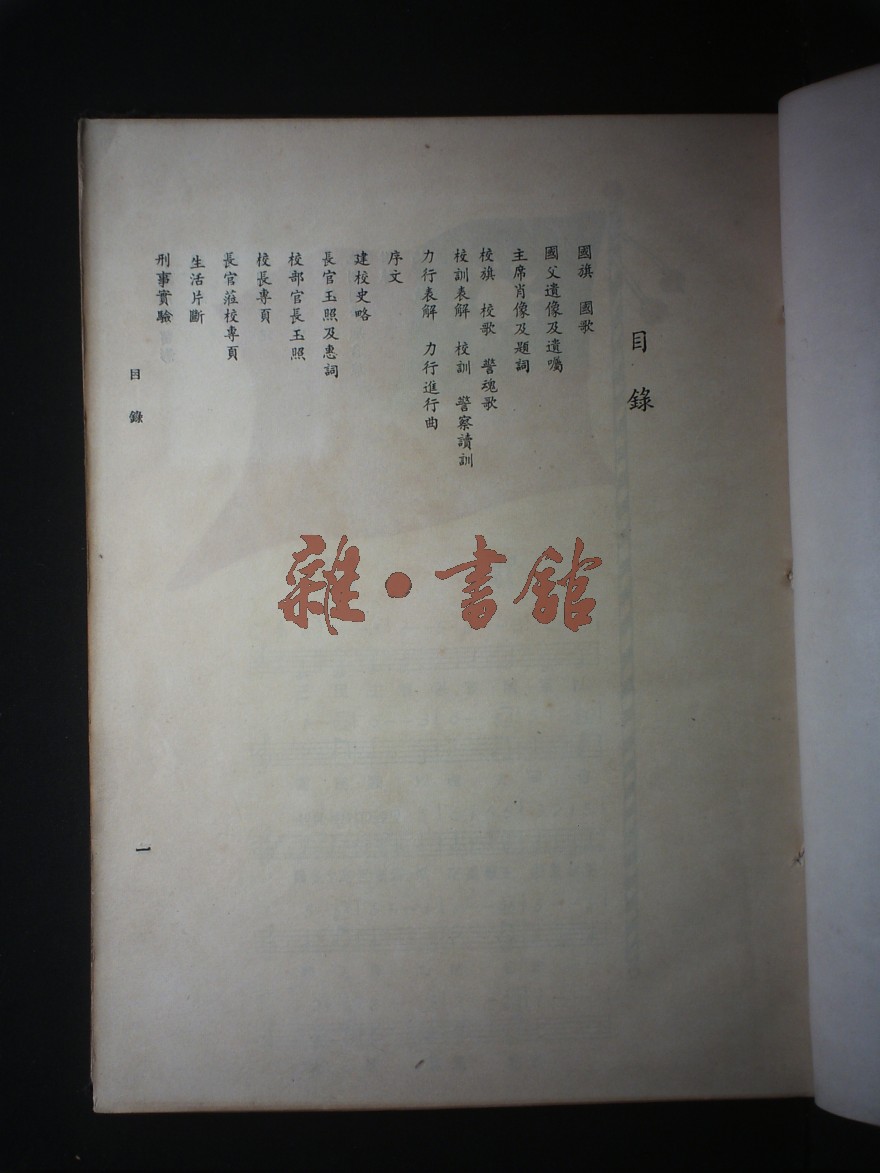 目錄
國旗 國歌
國父遺像及遺囑
主席肖像及題詞
校旗 校歌 警魂歌
校訓表解 校訓 警察讀訓
力行表解 力行進行曲
序文
建校史略
長官玉照及惠詞
校部官長玉照
校長專頁
長官蒞校專頁
生活片斷
刑事實驗
目錄
一
雜·書館